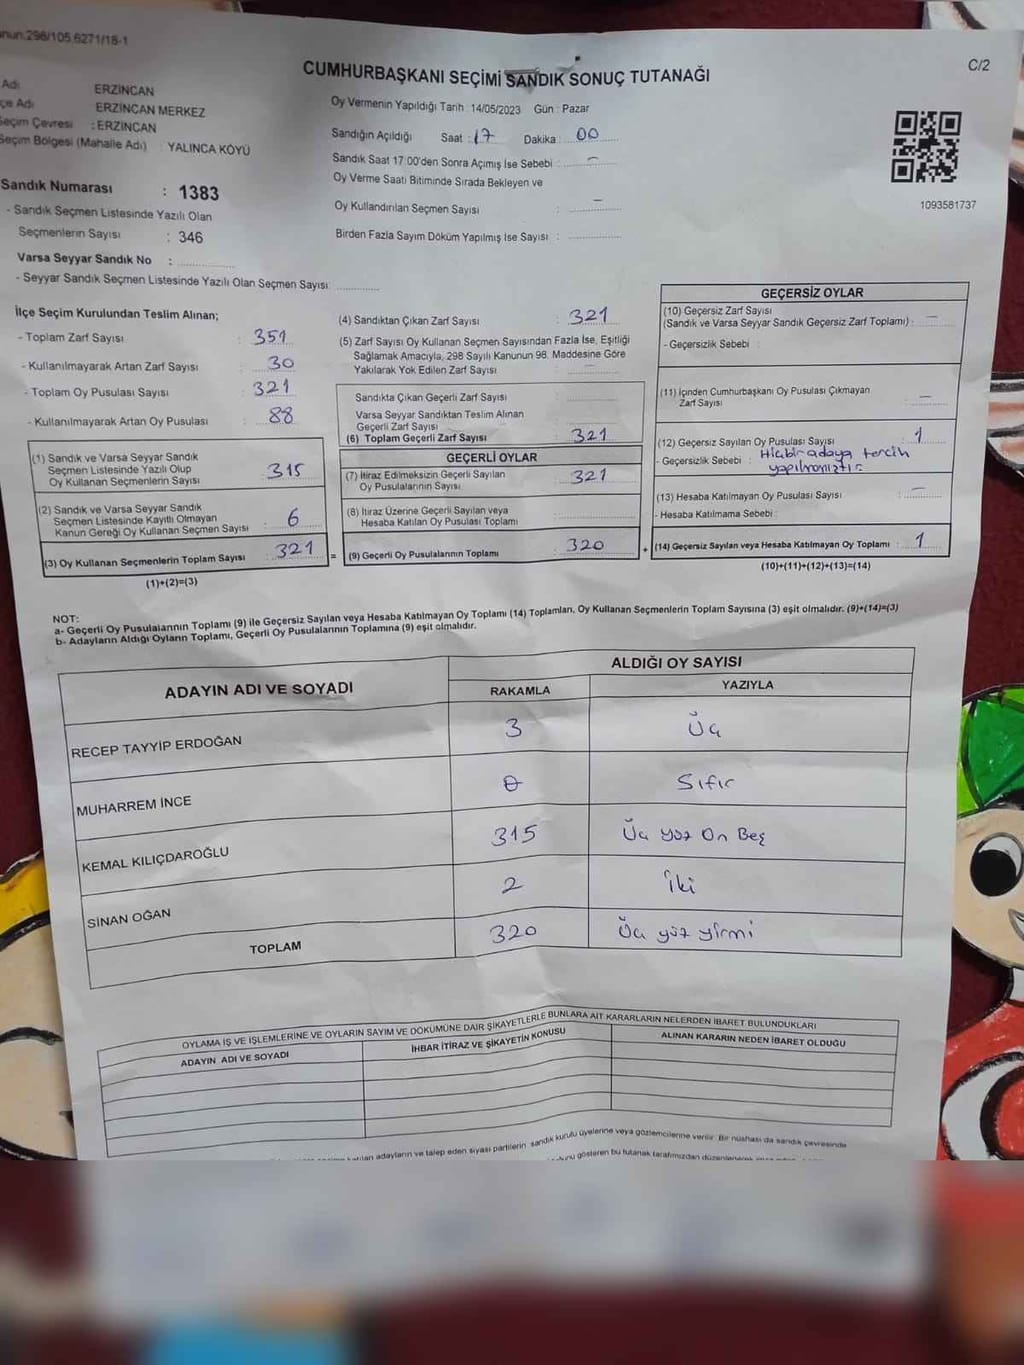 298/105,6271/18-1
CUMHURBAŞKANI SEÇİMİ SANDIK SONUÇ TUTANAĞI
C/2
Adı ERZİNCAN
çe Adı ERZİNCAN MERKEZ
Seçim Çevresi : ERZİNCAN
Seçim Bölgesi (Mahalle Adı) : YALINCA KÖYÜ
Sandık Numarası : 1383
- Sandık Seçmen Listesinde Yazılı Olan
Seçmenlerin Sayısı : 346
Varsa Seyyar Sandık No :
- Seyyar Sandık Seçmen Listesinde Yazılı Olan Seçmen Sayısı:
Oy Vermenin Yapıldığı Tarih : 14/05/2023 Gün : Pazar
Sandığın Açıldığı Saat : 17 Dakika : 00
Sandık Saat 17:00'den Sonra Açımış İse Sebebi : -
Oy Verme Saati Bitiminde Sırada Bekleyen ve
Oy Kullandırılan Seçmen Sayısı : -
Birden Fazla Sayım Döküm Yapılmış İse Sayısı :
1093581737
İlçe Seçim Kurulundan Teslim Alınan;
- Toplam Zarf Sayısı : 351
- Kullanılmayarak Artan Zarf Sayısı : 30
- Toplam Oy Pusulası Sayısı : 321
- Kullanılmayarak Artan Oy Pusulası : 88
(1) Sandık ve Varsa Seyyar Sandık
Seçmen Listesinde Yazılı Olup
Oy Kullanan Seçmenlerin Sayısı : 315
(2) Sandık ve Varsa Seyyar Sandık
Seçmen Listesinde Kayıtlı Olmayan
Kanun Gereği Oy Kullanan Seçmen Sayısı : 6
(3) Oy Kullanan Seçmenlerin Toplam Sayısı : 321
(1)+(2)=(3)
(4) Sandıktan Çıkan Zarf Sayısı : 321
(5) Zarf Sayısı Oy Kullanan Seçmen Sayısından Fazla İse, Eşitliği
Sağlamak Amacıyla, 298 Sayılı Kanunun 98. Maddesine Göre
Yakılarak Yok Edilen Zarf Sayısı : -
Sandıkta Çıkan Geçerli Zarf Sayısı :
Varsa Seyyar Sandıktan Teslim Alınan
Geçerli Zarf Sayısı :
(6) Toplam Geçerli Zarf Sayısı : 321
GEÇERLİ OYLAR
(7) İtiraz Edilmeksizin Geçerli Sayılan
Oy Pusulalarının Sayısı : 321
(8) İtiraz Üzerine Geçerli Sayılan veya
Hesaba Katılan Oy Pusulası Toplamı :
= (9) Geçerli Oy Pusulalarının Toplamı : 320
GEÇERSİZ OYLAR
(10) Geçersiz Zarf Sayısı
(Sandık ve Varsa Seyyar Sandık Geçersiz Zarf Toplamı) : -
- Geçersizlik Sebebi :
(11) İçinden Cumhurbaşkanı Oy Pusulası Çıkmayan
Zarf Sayısı : -
(12) Geçersiz Sayılan Oy Pusulası Sayısı : 1
- Geçersizlik Sebebi : Hiçbir adaya tercih
yapılmamıştır
(13) Hesaba Katılmayan Oy Pusulası Sayısı : -
- Hesaba Katılmama Sebebi :
+ (14) Geçersiz Sayılan veya Hesaba Katılmayan Oy Toplamı : 1
(10)+(11)+(12)+(13)=(14)
NOT:
a- Geçerli Oy Pusulalarının Toplamı (9) ile Geçersiz Sayılan veya Hesaba Katılmayan Oy Toplamı (14) Toplamları, Oy Kullanan Seçmenlerin Toplam Sayısına (3) eşit olmalıdır. (9)+(14)=(3)
b- Adayların Aldığı Oyların Toplamı, Geçerli Oy Pusulalarının Toplamına (9) eşit olmalıdır.
ADAYIN ADI VE SOYADI
ALDIĞI OY SAYISI
RAKAMLA YAZIYLA
RECEP TAYYİP ERDOĞAN 3 Üç
MUHARREM İNCE 0 Sıfır
KEMAL KILIÇDAROĞLU 315 Üç yüz On Beş
SİNAN OĞAN 2 İki
TOPLAM 320 Üç yüz yirmi
OYLAMA İŞ VE İŞLEMLERİNE VE OYLARIN SAYIM VE DÖKÜMÜNE DAİR ŞİKAYETLERLE BUNLARA AİT KARARLARIN NELERDEN İBARET BULUNDUKLARI
ADAYIN ADI VE SOYADI İHBAR İTİRAZ VE ŞİKAYETİN KONUSU ALINAN KARARIN NEDEN İBARET OLDUĞU
adayların ve talep eden siyasi partilerin sandık kurulu üyelerine veya gözlemcilerine verilir. Bir nüshası da sandık çevresinde
gösteren bu tutanak tarafımızdan